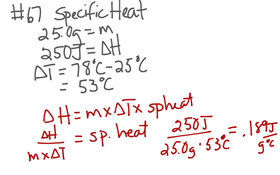 #67 Specific Heat
25.0g = m
250J = ΔH
ΔT = 78°C - 25°C
= 53°C
ΔH = m x ΔT x spheat
ΔH / m x ΔT = sp. heat 250J / 25.0g · 53°C = .189J / g°C